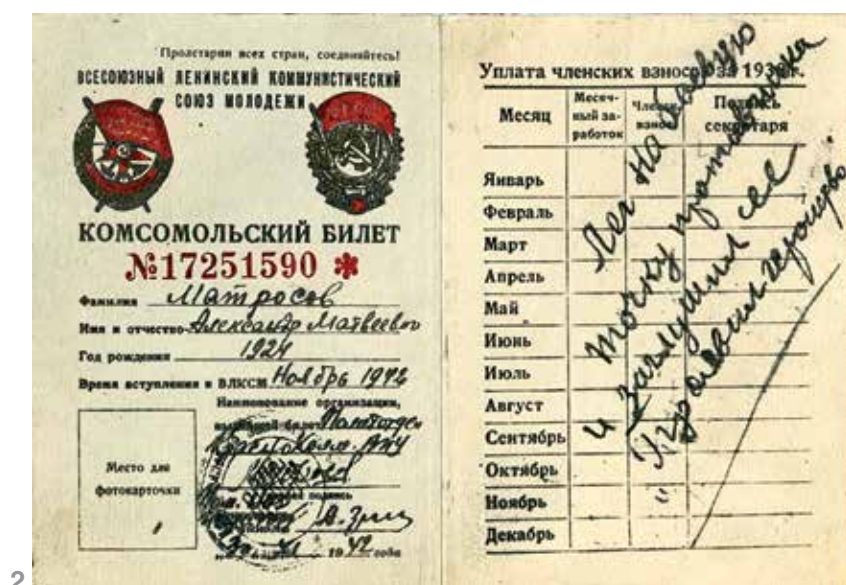 Пролетарии всех стран, соединяйтесь!
ВСЕСОЮЗНЫЙ ЛЕНИНСКИЙ КОММУНИСТИЧЕСКИЙ
СОЮЗ МОЛОДЕЖИ
КОМСОМОЛЬСКИЙ БИЛЕТ
№17251590 *
Фамилия Матросов
Имя и отчество Александр Матвеевич
Год рождения 1924
Время вступления в ВЛКСМ Ноябрь 1942
Наименование организации,
билет
Место для
фотокарточки
подпись
1942 года
Уплата членских взносов за 193 г.
Месяц
Месяч-
ный за-
работок
Членск.
взнос
Подпись
секретаря
Январь
Февраль
Март
Апрель
Май
Июнь
Июль
Август
Сентябрь
Октябрь
Ноябрь
Декабрь
Лег на боевую
точку противника
и заглушил ее
Проявил геройство
2